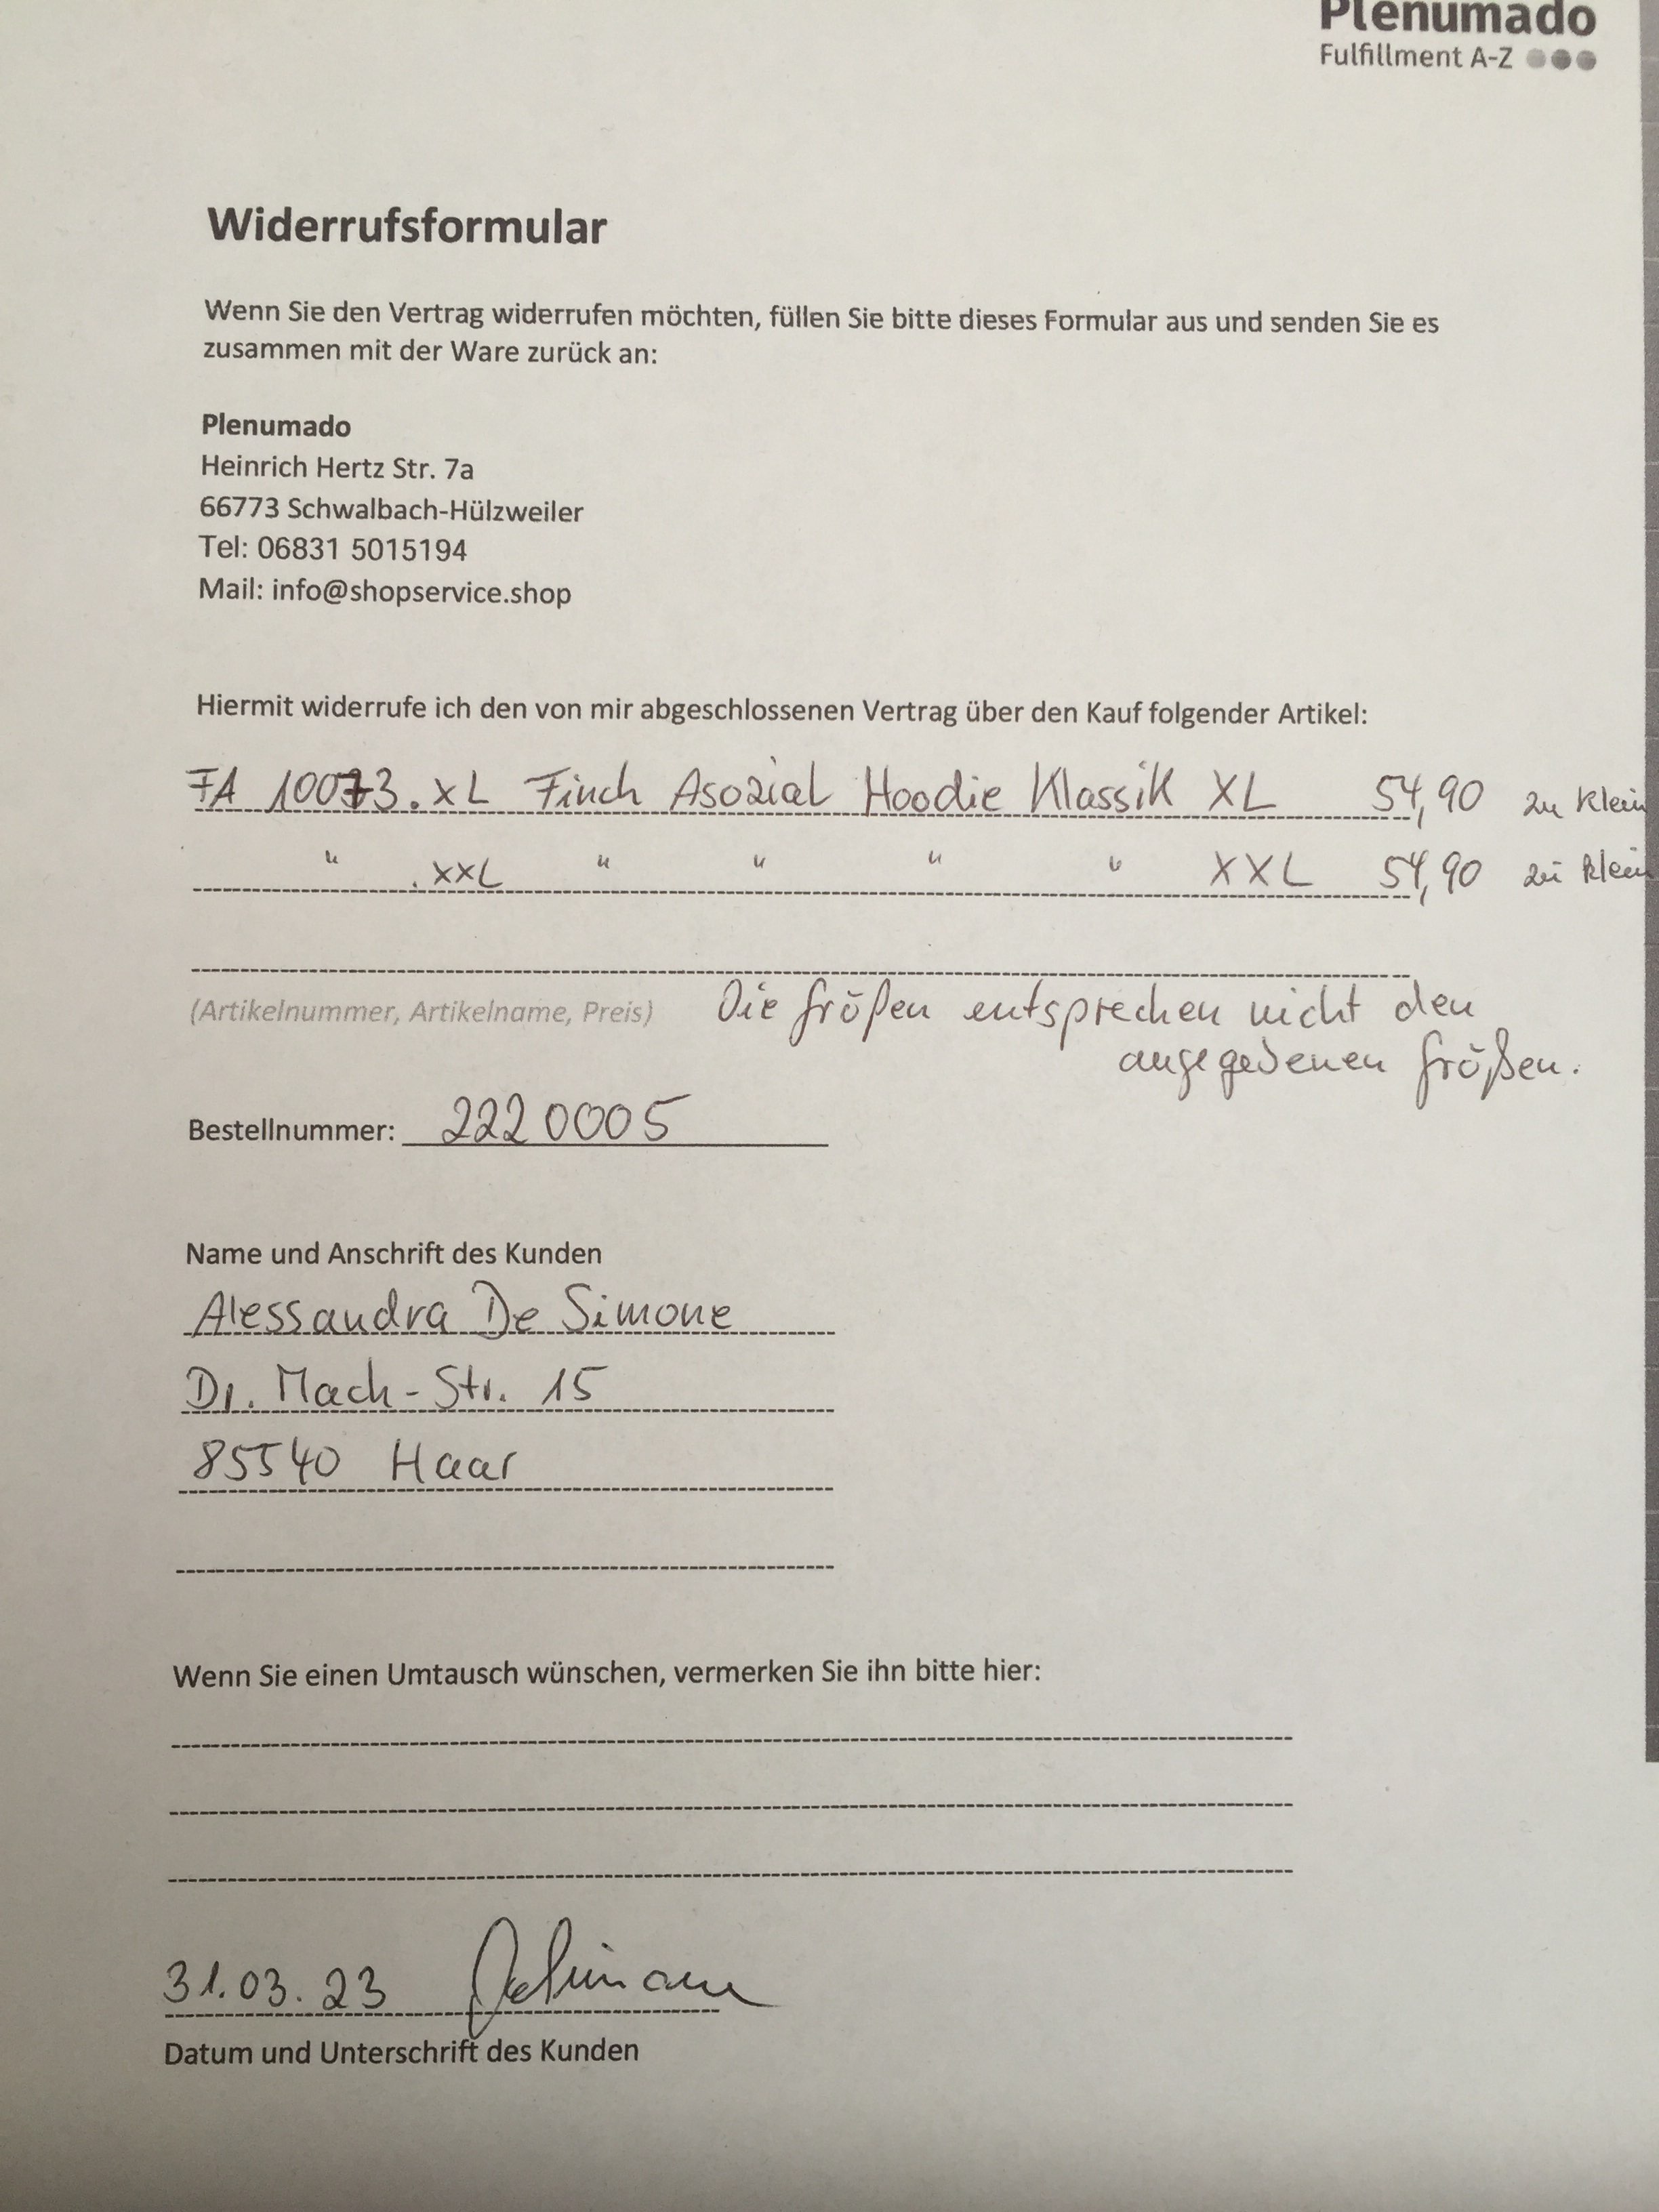 Plenumado
Fulfillment A-Z
Widerrufsformular
Wenn Sie den Vertrag widerrufen möchten, füllen Sie bitte dieses Formular aus und senden Sie es
zusammen mit der Ware zurück an:
Plenumado
Heinrich Hertz Str. 7a
66773 Schwalbach-Hülzweiler
Tel: 06831 5015194
Mail: info@shopservice.shop
Hiermit widerrufe ich den von mir abgeschlossenen Vertrag über den Kauf folgender Artikel:
FA 10073.XL Finch Asozial Hoodie Klassik XL 54,90 zu klein
" .XXL " " " " XXL 54,90 zu klein
(Artikelnummer, Artikelname, Preis) Die Größen entsprechen nicht den
angegebenen Größen.
Bestellnummer: 2220005
Name und Anschrift des Kunden
Alessandra De Simone
Dr. Mach-Str. 15
85540 Haar
Wenn Sie einen Umtausch wünschen, vermerken Sie ihn bitte hier:
31.03.23
Datum und Unterschrift des Kunden